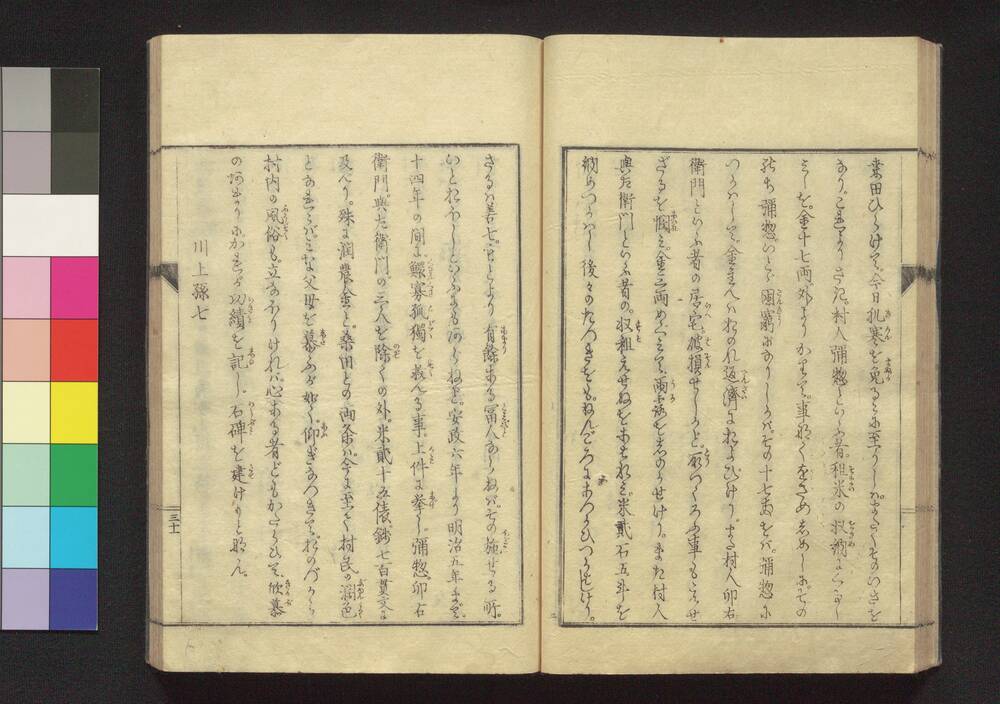 桑田ひらけて。今日飢寒を免るゝに至りしハ。またくそのいさを
なり。これより さき。村人彌惣といふ者。租米の収納にくるし
みしを。金十七両外より かりて。事なくをさめ しめしに。その
のち彌惣いたく困窮におちいりしかバ。その十七両をバ。彌惣に
つかハして。金主へハおのれ返濟におよびけり。また村人卯右
衛門といふ者の居宅。破損せしかど。取つくろふ事もえせ
ざるを憫ミ。金三両めぐミて。雨露をしのがせけり。また村人
與左衛門といふ者の。収租えせぬをあはれミ。米貳石五斗を
納めつかハし 後々のたつきをも。ねんごろにあつかひつかはせり。
さるハ善七。もとより 有餘ある冨人ならねバ。その施せる所。
いとおほしといふにもあらねど。安政六年より 明治五年まで。
十四年の間に。鰥寡孤獨を救へる事。上件に挙し。彌惣。卯右
衛門。與左衛門の三人を除くの外。米貳十五俵。錢七百貫文に
及べり。殊に潤農金と。桑田との両条ハ。今に至て 村民の潤色
となれゝバ。ミな父母を慕ふが如く。仰ぎたつきて。おのづから
村内の風俗も。立なほりけれバ。心ある者どもかたらひて。欣慕
の あまりにかれが功績を記し。石碑を建けりとなん。
川上孫七
三十